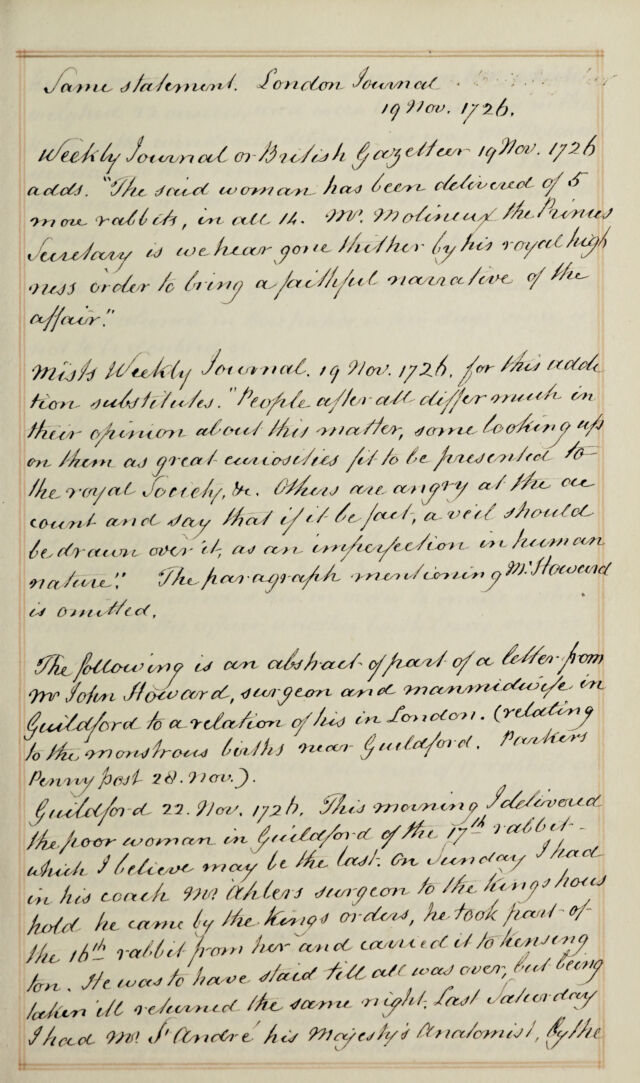 Same statement. London Journal
19 Nov. 1726.
Weekly Journal or British Gazetteer 19 Nov. 1726
adds. "The said woman has been delivered of 5
more rabbits, in all 14. Mr. Molineux the Princes
Secretary is we hear gone thither by his royal high
ness order to bring a faithful narrative of the
affair."
Mists Weekly Journal. 19 Nov. 1726. for this addi
tion substitutes. "People after all differ much in
their opinion about this matter, some looking up
on them as great curiosities fit to be presented to
the royal Society, &c. Others are angry at the ac
count and say that if it be fact, a veil should
be drawn over it, as an imperfection in human
nature". The paragraph mentioning Mr Howard
is omitted.
The following is an abstract of part of a letter from
Mr John Howard, surgeon and manmidwife in
Guildford to a relation of his in London. (relating
to the monstrous births near Guildford. Parkers
Penny post 28. Nov.).
Guildford 22. Nov. 1726. This morning I delivered
the poor woman in Guildford of the 17th rabbit -
which I believe may be the last. On Sunday I had
in his coach Mr. Ahlers surgeon to the Kings hous
hold he came by the Kings orders, he took part of
the 16th rabbit from her and carried it to Kensing
ton. He was to have staid till all was over, but being
taken ill returned the same night. Last Saturday
I had Mr. St André his Majesty's Anatomist, by the